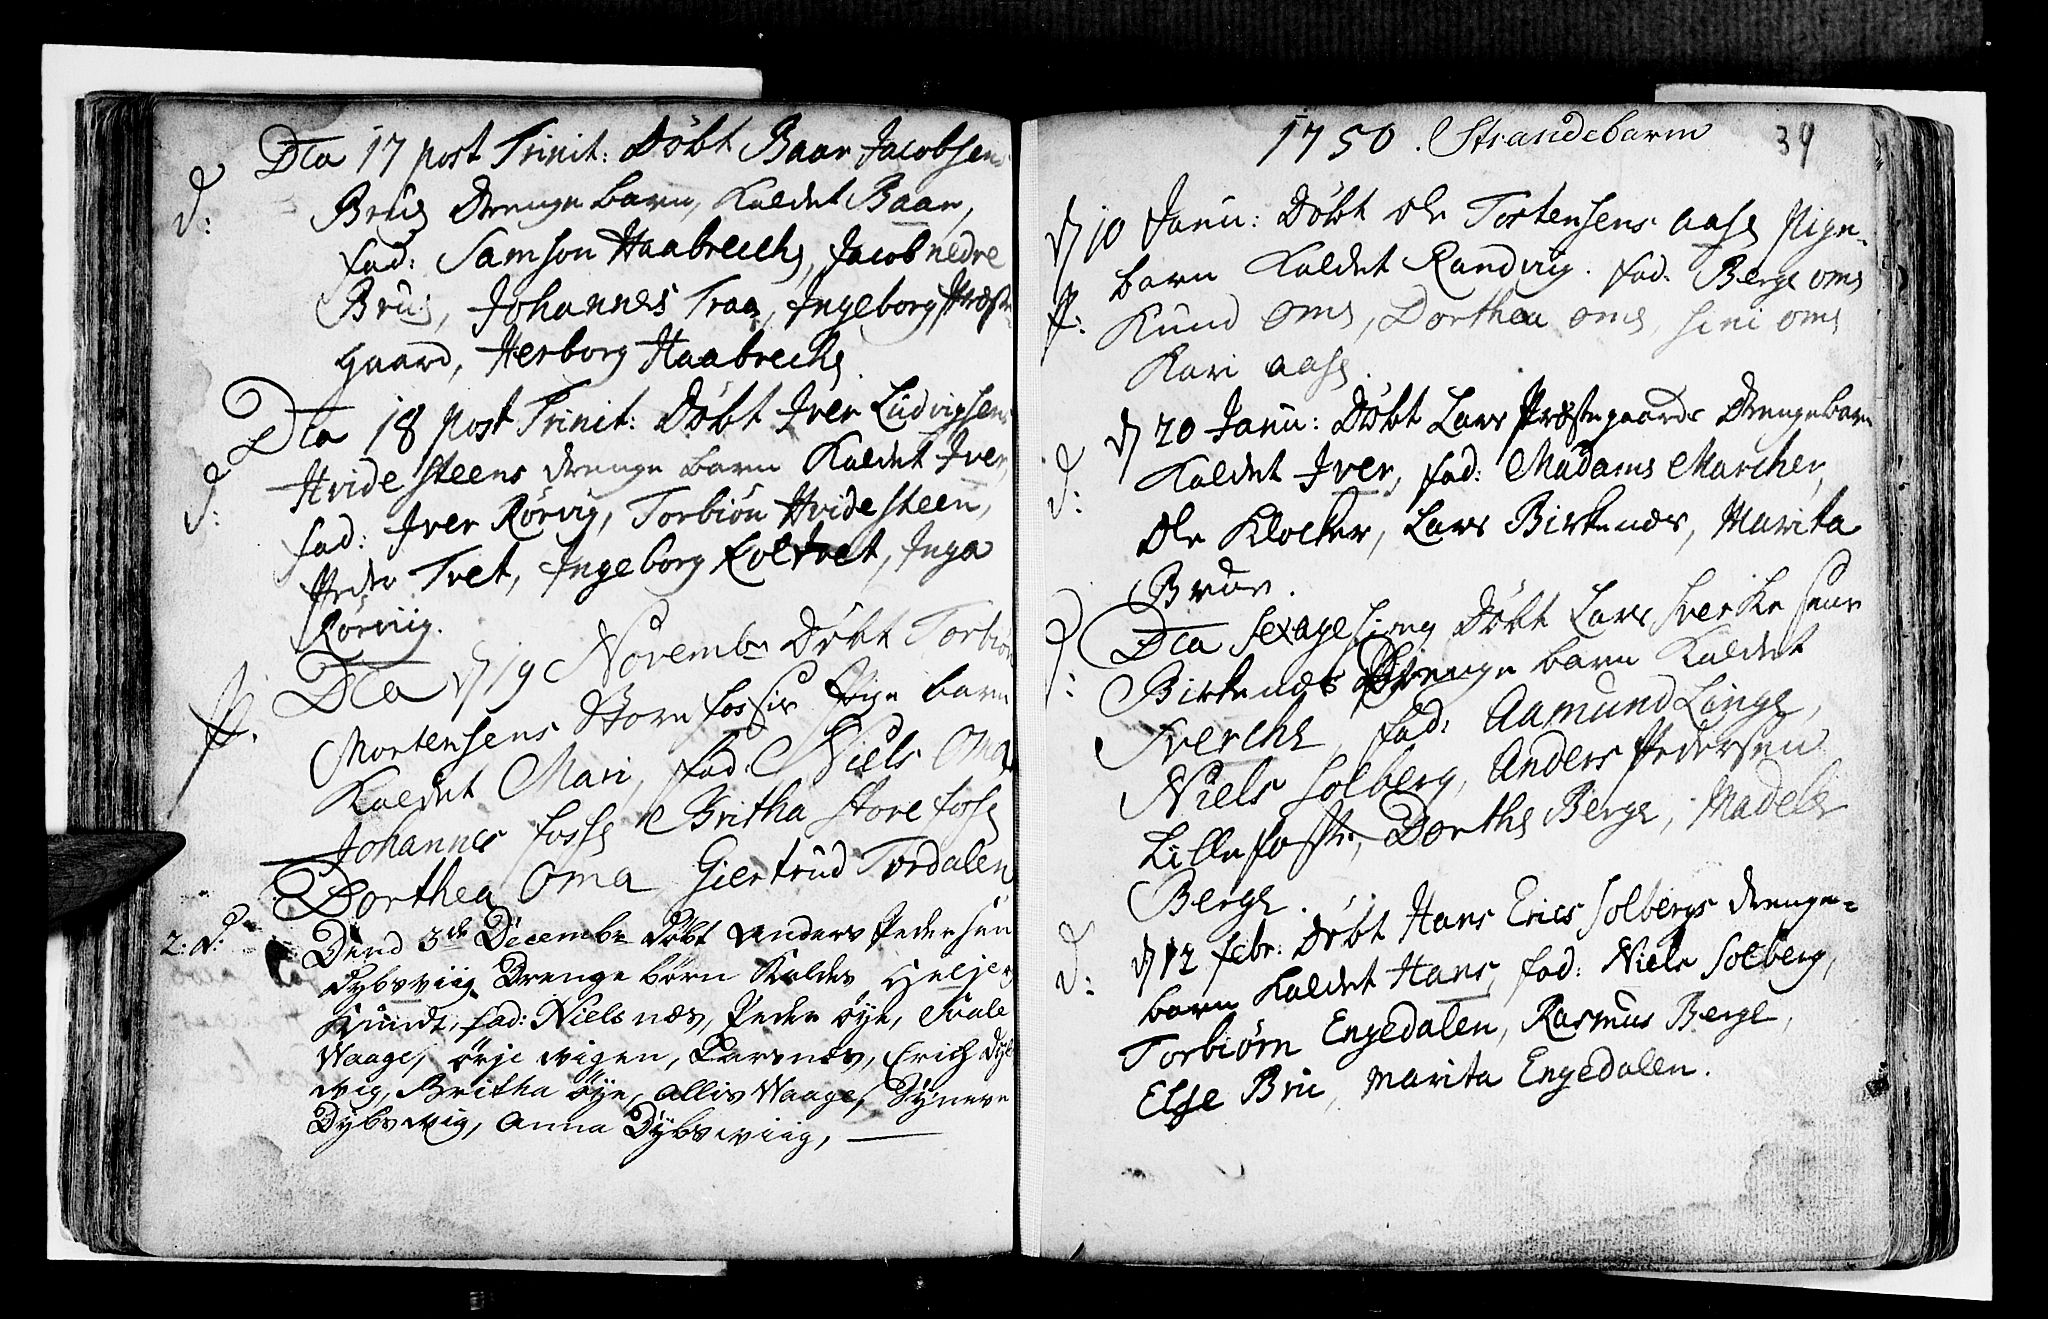 Dca 17 post Trinit: Døbt Baar Jacobsens
d: Brus Drenge barn, Kaldet Baar,
fad: Samson Haabrechs, Jacob nedre
Brus, Johannes Traa, Ingeborg Præste-
gaard, Herborg Haabrechs.
Dca 18 post Trinit: Døbt Iver Ludvigsens
d: Hvide steens drenge barn Kaldet Iver,
fad: Iver Rørvig, Torbiøn Hvidesteen,
Peder Tvet, Ingeborg Koltvet, Inga
Rørviig.
Dca d 19 Novembr Døbt Torbiøn
P. Mortensens Store fosses Pige barn
Kaldet Mari, fad. Niels Oma,
Johannes fosse Britha Store fosse
Dorthea Oma Giertrud Tordalen
2: d: Dend 3de Decembr døbt Anders Pedersen
Dybsviig Drenge børn Kaldes Helje og
Kundt, fad: Niels næs, Peder øye,
Waage, ørje wigen, Lars næs, Erich Dybs
vig, Britha øye, Allis Waage, Synneve
Dybsvig, Anna Dybsviig,
1750. Strandebarm 39
d 10 Janu: Døbt Ole Tostensens Aase Pige-
barn Kaldet Randvig. fad: Berge Oms
P: Knud Oms, Dorthea Oms, Sini Oms
Kari Aase.
d 20 Janu: Døbt Lars Præstegaards Drengebarn
d: Kaldet Iver, fad: Madams Marcher,
Ole Klocker, Lars Birkenæs, Marita
Brue.
Dca Sexagesima Døbt Lars Sverkesens
d: Birkenæs Drenge barn Kaldet
Sverche, fad: Aamund Linge,
Niels Solberg, Anders Pedersen
Lille foss, Dorthe Berge, Madele
Berge.
d: d 12 febr: Døbt Hans Erics Solbergs drenge-
barn Kaldet Hans, fad: Niels Solberg,
Torbiørn Engedalen, Rasmus Berge,
Else Bru, Marita Engedalen.